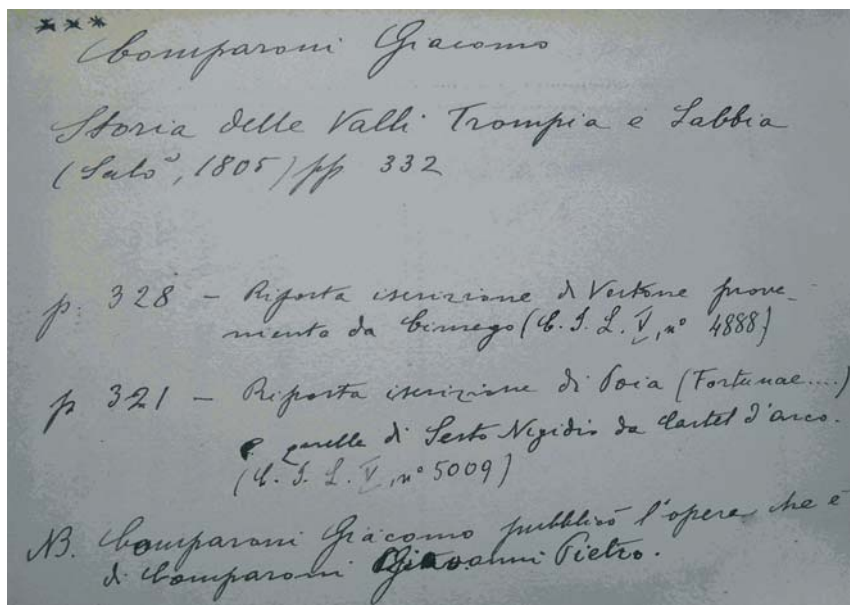 ***
Comparoni Giacomo
Storia delle Valli Trompia e Sabbia
(Salò, 1805) pp 332
p. 328 - Riporta iscrizione di Vestone prove-
niente da Cimego (C. I. L. V, n° 4888)
p 321 - Riporta iscrizione di Poia (Fortunae....)
e quelle di Sesto Nigidio da Castel d'arco.
(C. I. L. V, n° 5009)
NB. Comparoni Giacomo pubblicò l'opera che è
di Comparoni Giovanni Pietro.